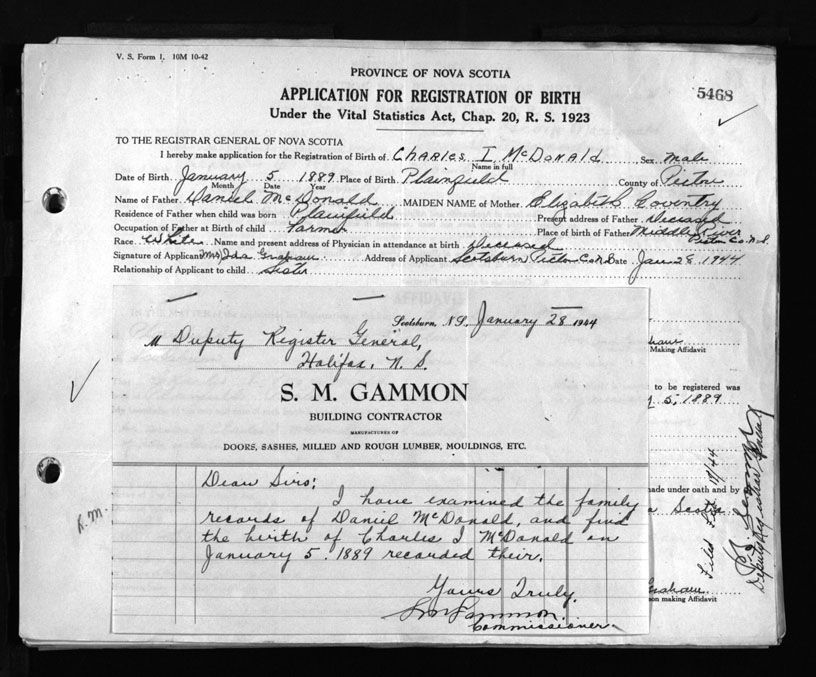 V. S. Form 1. 10M 10-42
PROVINCE OF NOVA SCOTIA
5468
APPLICATION FOR REGISTRATION OF BIRTH
Under the Vital Statistics Act, Chap. 20, R. S. 1923
TO THE REGISTRAR GENERAL OF NOVA SCOTIA
I hereby make application for the Registration of Birth of Charles I McDonald Sex Male
Name in full
Date of Birth January 5 1889 Place of Birth Plainfield County of Pictou
Month Date Year
Name of Father Daniel McDonald MAIDEN NAME of Mother Elizabeth Coventry
Residence of Father when child was born Plainfield Present address of Father Deceased
Occupation of Father at Birth of child Farmer Place of birth of Father Middle River
Pictou Co. N.S.
Race White Name and present address of Physician in attendance at birth Deceased
Signature of Applicant Mrs Ida Graham Address of Applicant Scotsburn Pictou Co N.S Date Jan 28 1944
Relationship of Applicant to child Sister
Scotsburn, N.S., January 28 1944
M Duputy Register General,
Halifax, N. S.
S. M. GAMMON
BUILDING CONTRACTOR
MANUFACTURES OF
DOORS, SASHES, MILLED AND ROUGH LUMBER, MOULDINGS, ETC.
Dear Sirs:
I have examined the family
records of Daniel McDonald, and find
the birth of Charles I McDonald on
January 5. 1889 recorded their.
Yours Truly.
S M Gammon.
Commissioner.
raham
Making Affidavit
to be registered was
y 5, 1889
made under oath and by
a Scotia
Graham
son making Affidavit
R.M.
Filed Feb 17/44
Deputy Registrar General